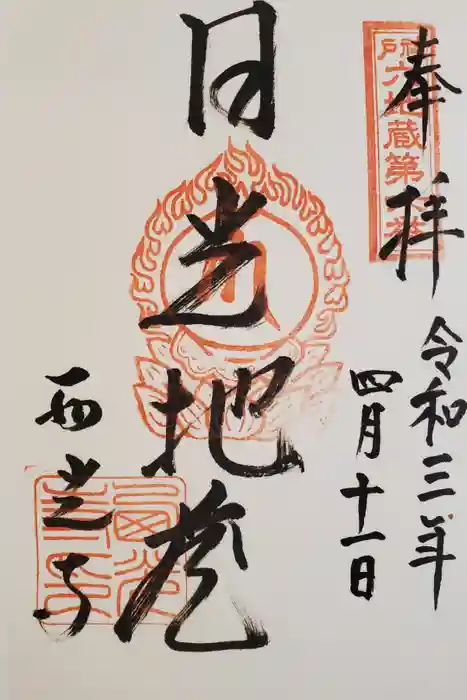 奉拝
令和三年
四月十一日
日光地蔵
西光寺
六地蔵第
西光寺